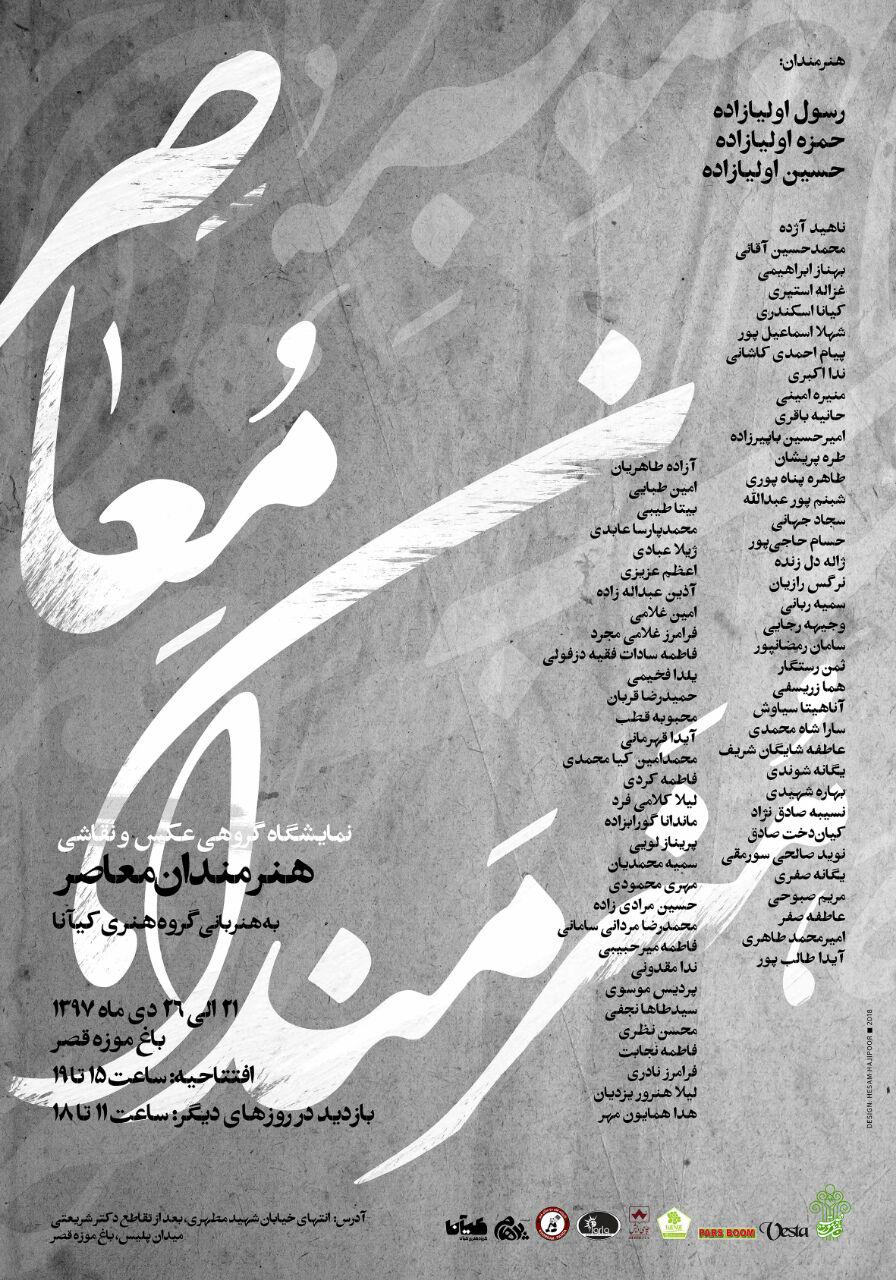 هنرمندان:
رسول اولیازاده
حمزه اولیازاده
حسین اولیازاده
ناهید آژده
محمدحسین آقائی
بهناز ابراهیمی
غزاله استیری
کیانا اسکندری
شهلا اسماعیل پور
پیام احمدی کاشانی
ندا اکبری
منیره امینی
حانیه باقری
امیرحسین باپیرزاده
طره پریشان
طاهره پناه پوری
شبنم پور عبدالله
سجاد جهانی
حسام حاجی‌پور
ژاله دل زنده
نرگس رازیان
سمیه ربانی
وجیهه رجایی
سامان رمضانپور
ثمن رستگار
هما زریسفی
آناهیتا سیاوش
سارا شاه محمدی
عاطفه شایگان شریف
یگانه شوندی
بهاره شهیدی
نسیبه صادق نژاد
کیان‌دخت صادق
نوید صالحی سورمقی
یگانه صفری
مریم صبوحی
عاطفه صفر
امیرمحمد طاهری
آیدا طالب پور
آزاده طاهریان
امین طبایی
بیتا طیبی
محمدپارسا عابدی
ژیلا عبادی
اعظم عزیزی
آذین عبداله زاده
امین غلامی
فرامرز غلامی مجرد
فاطمه سادات فقیه دزفولی
یلدا فخیمی
حمیدرضا قربان
محبوبه قطب
آیدا قهرمانی
محمدامین کیا محمدی
فاطمه کردی
لیلا کلامی فرد
ماندانا گورابزاده
پریناز لویی
سمیه محمدیان
مهری محمودی
حسین مرادی زاده
محمدرضا مردانی سامانی
فاطمه میرحبیبی
ندا مقدونی
پردیس موسوی
سیدطاها نجفی
محسن نظری
فاطمه نجابت
فرامرز نادری
لیلا هنرور یزدیان
هدا همایون مهر
هنرمندان
مُعاصِر
نمایشگاه گروهی عکس و نقاشی
هنرمندان معاصر
به هنربانی گروه هنری کیآنا
۲۱ الی ۲۶ دی ماه ۱۳۹۷
باغ موزه قصر
افتتاحیه: ساعت ۱۵ تا ۱۹
بازدید در روزهای دیگر: ساعت ۱۱ تا ۱۸
آدرس: انتهای خیابان شهید مطهری، بعد از تقاطع دکتر شریعتی
میدان پلیس، باغ موزه قصر
کیآنا
PARS BOOM
Vesta
DESIGN: HESAM HAJIPOOR ■ 2018